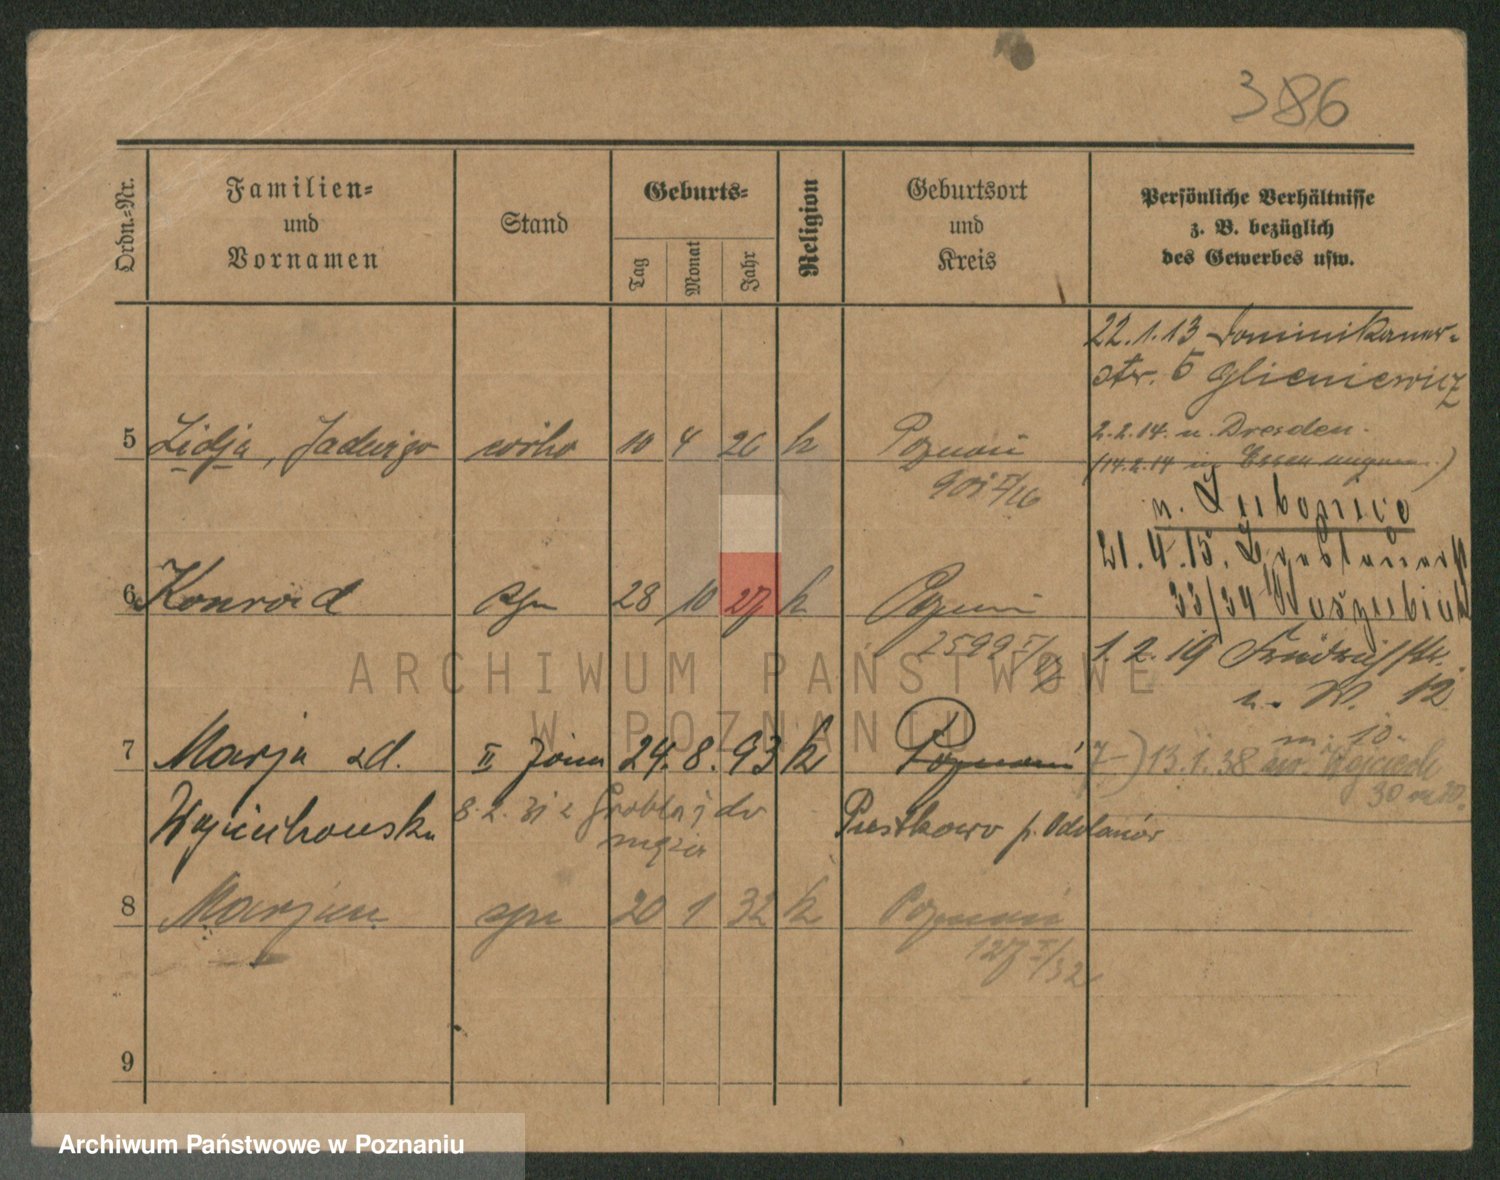 386
Ordn.=Nr.
Familien=
und
Vornamen
Stand
Geburts=
Tag
Monat
Jahr
Religion
Geburtsort
und
Kreis
Persönliche Verhältnisse
z. B. bezüglich
des Gewerbes usw.
22.1.13 Dominikaner-
str. 5 Glieniewicz
5 Lidja, Jadwiga córka 10 4 26 k Poznań
2.2.14. n. Dresden.
(14.2.14 in Essen)
n. Luboznice
21.4.15.
33/34
6 Konrad syn 28 10 27 k Poznań
2599
1.2.19
n. W. 12
m. 10.
7 Marja zd. II żona 24. 8. 93 k Poznań
7 ) 13.1.38 św. Wojciech
30 m 10.
Wojciechowska 8.2.31 z Grobla do
męża
Pustkowo p. Odolanów
8 Marjan syn 20 1 32 k Poznań
127 I/32
9
ARCHIWUM PAŃSTWOWE
W POZNANIU
Archiwum Państwowe w Poznaniu